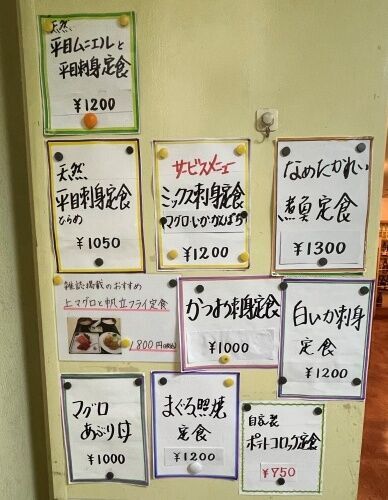 天然
平目ムニエルと
平目刺身定食
¥1200
天然
平目刺身定食
ひらめ
¥1050
サービスメニュー
ミックス刺身定食
マグロ・いか・かんぱち
¥1200
なめたかれい
煮奠定食
¥1300
雑誌掲載のおすすめ
上マグロと帆立フライ定食
1,800円(税込)
かつお刺身定食
¥1000
白いか刺身
定食
¥1200
マグロ
あぶり丼
¥1000
まぐろ照焼
定食
¥1200
自家製
ポテトコロッケ定食
¥750